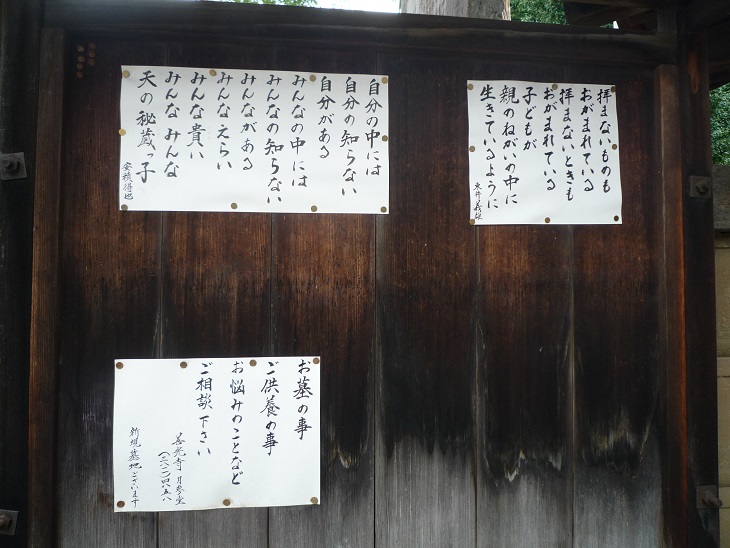 拝まないものも
おがまれている
拝まないときも
おがまれている
子どもが
親のねがいの中に
生きているように
東井義雄
自分の中には
自分の知らない
自分がある
みんなの中には
みんなの知らない
みんながある
みんなえらい
みんな貴い
みんなみんな
天の秘蔵っ子
安積得也
お墓の事
ご供養の事
お悩みのことなど
ご相談下さい
善光寺
新規墓地ございます